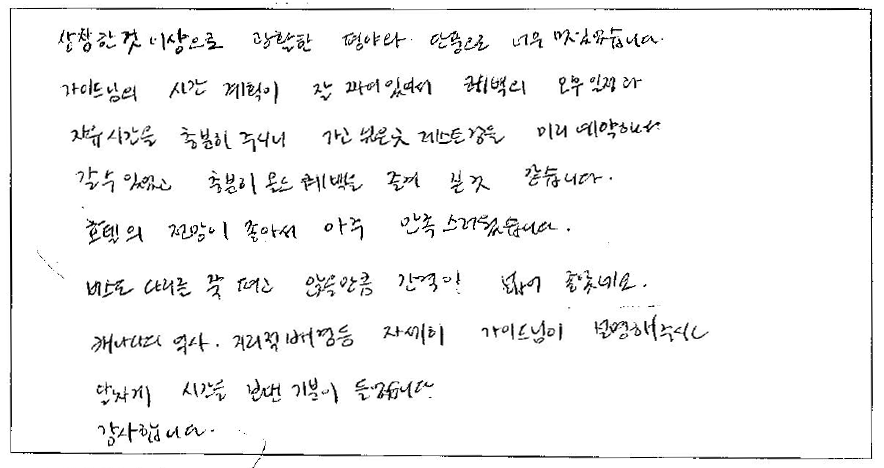 상상한 것 이상으로 광활한 평야와 단풍으로 너무 멋있었습니다.
가이드님의 시간 계획이 잘 짜여있어서 퀘백의 모든 일정과
자유시간을 충분히 주시니 가고 싶은곳 레스토랑을 미리 예약해서
갈수 있었고 충분히 몬트 퀘백을 즐겨 본것 같습니다.
호텔의 전망이 좋아서 아주 만족스러웠습니다.
버스도 다리를 쭉 펴고 앉을만큼 간격이 넓어 좋았네요.
캐나다의 역사. 지리적 배경등 자세히 가이드님이 설명해주시니
알차게 시간을 보낸 기분이 들었습니다
감사합니다.